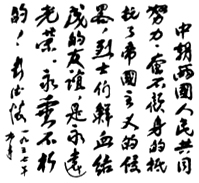 中朝兩國人民共同
努力,奮不顧身的抵
抗了帝國主义的侵
畧,烈士们鮮血结
成的友谊是永遠
光荣,永垂不朽
的!彭德怀
一九五七年